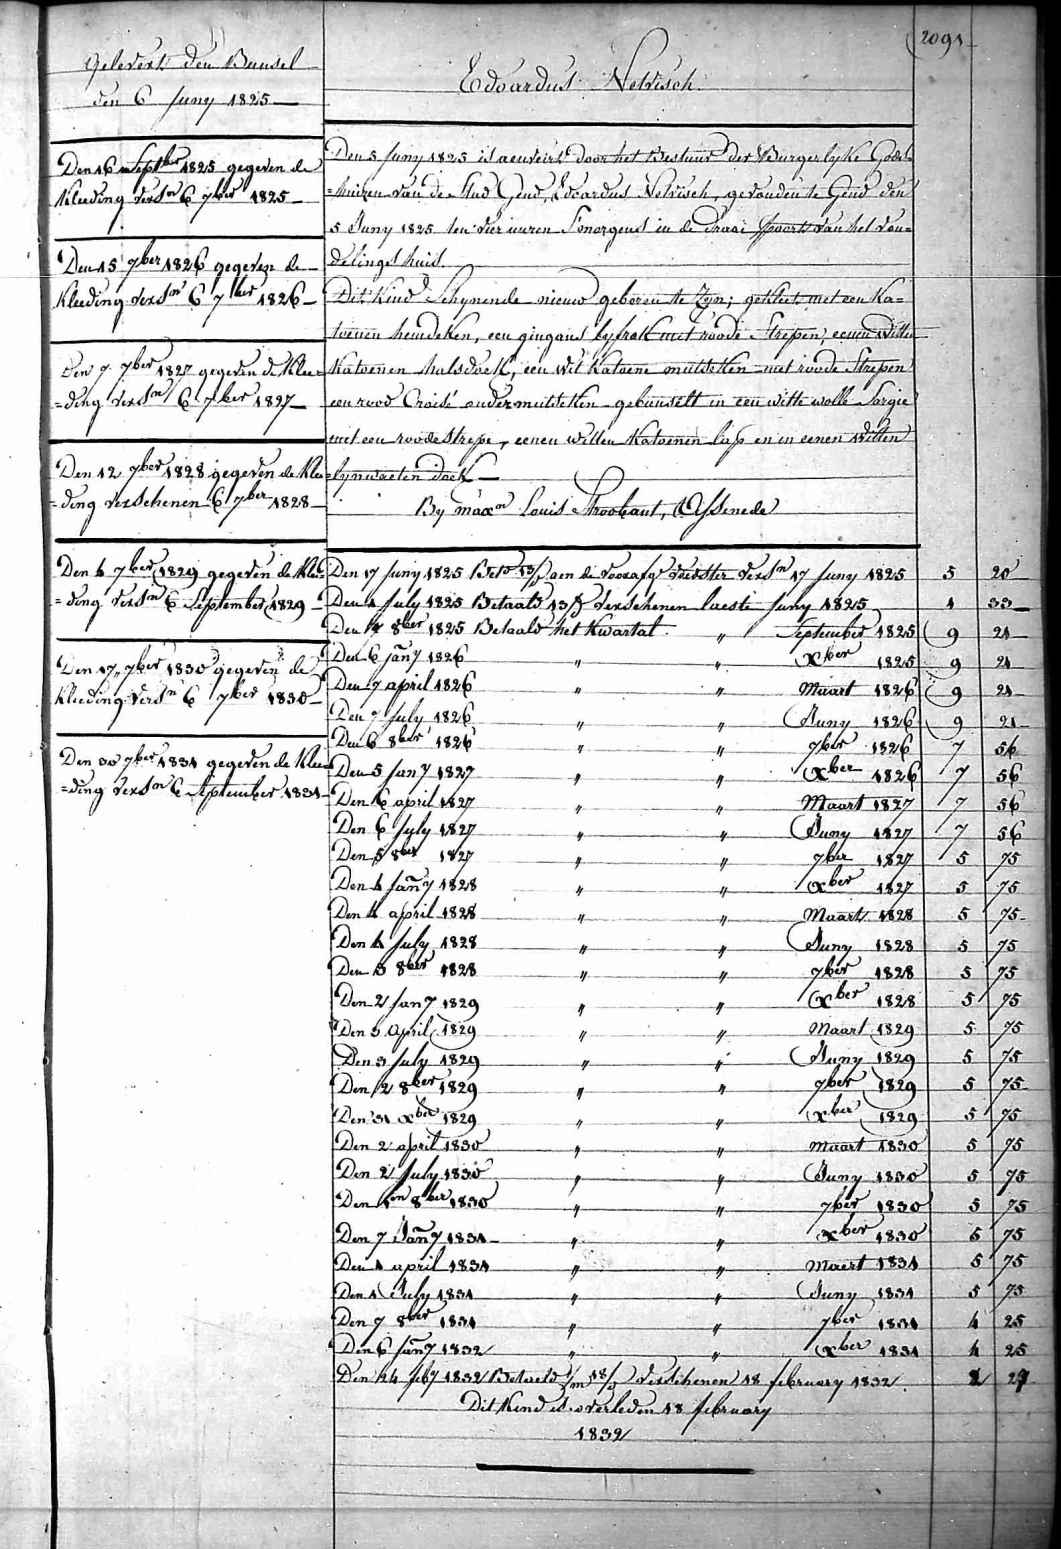 2091
Gelevert den Bunsel
den 6 Juny 1825
Den 16 Septber 1825 gegeven de
kleeding versn 6 7ber 1825
Den 15 7ber 1826 gegeven de
kleeding versn 6 7ber 1826
Den 7 7ber 1827 gegeven de klee=
=ding versn 6 7ber 1827
Den 12 7ber 1828 gegeven de klee
=ding verschenen 6 7ber 1828
Den 4 7ber 1829 gegeven de klee=
=ding versn 6 September 1829
Den 17 7ber 1830 gegeven de
kleeding versn 6 7ber 1830
Den 30 7ber 1831 gegeven de klee
=ding versn 6 September 1831
Edoardus Nelrisch.
Den 5 Juny 1825 is aenveirt door het Bestuur der Burgerlyke Gods=
=huizen van de Stad Gend, Edoardus Nelrisch, gevonden te Gend den
5 Juny 1825 ten vier uuren S'morgens in de Draai Poorte van het von=
delings huis.
Dit Kind Schynende nieuw geboren te Zyn; gekleet met een Ka=
toenen hemdeken, een gingans lyfrok met roode Strepen, eenen Witten
Katoenen halsdoek, een wit Katoene mutsken met roode Strepen
een rood Croisé ondermutsken gebunselt in een witte wolle Sargie
met een roode strepe, eenen witten Katoenen lap en in eenen Witten
lynwaeten doek
By maxn Louis Stroobant, Assenede
Den 17 Juny 1825 Beto 13/ aen de voorafg voedster versn 17 Juny 1825 5 20
Den 1 July 1825 Betaald 13/ verschenen laeste Juny 1825 1 33
Den 4 8ber 1825 Betaald het Kwartal " September 1825 9 21
Den 6 Jany 1826 " " Xber 1825 9 21
Den 7 april 1826 " " Maart 1826 9 21
Den 7 July 1826 " " Juny 1826 9 21
Den 6 8ber 1826 " " 7ber 1826 7 56
Den 5 Jany 1827 " " Xber 1826 7 56
Den 6 april 1827 " " Maart 1827 7 56
Den 6 July 1827 " " Juny 1827 7 56
Den 5 8ber 1827 " " 7ber 1827 5 75
Den 4 Jany 1828 " " Xber 1827 5 75
Den 4 april 1828 " " Maart 1828 5 75
Den 4 July 1828 " " Juny 1828 5 75
Den 3 8ber 1828 " " 7ber 1828 5 75
Den 2 Jany 1829 " " Xber 1828 5 75
Den 3 April 1829 " " Maart 1829 5 75
Den 3 July 1829 " " Juny 1829 5 75
Den 2 8ber 1829 " " 7ber 1829 5 75
Den 31 Xber 1829 " " Xber 1829 5 75
Den 2 april 1830 " " Maart 1830 5 75
Den 2 July 1830 " " Juny 1830 5 75
Den 1n 8ber 1830 " " 7ber 1830 5 75
Den 7 Jany 1831 " " Xber 1830 5 75
Den 1 april 1831 " " Maert 1831 5 75
Den 1 July 1831 " " Juny 1831 5 75
Den 7 8ber 1831 " " 7ber 1831 4 25
Den 6 Jany 1832 " " Xber 1831 4 25
Den 24 feby 1832 Betaeld 1/m 18/ verschenen 18 february 1832 2 27
Dit Kind is overleden 18 february
1832